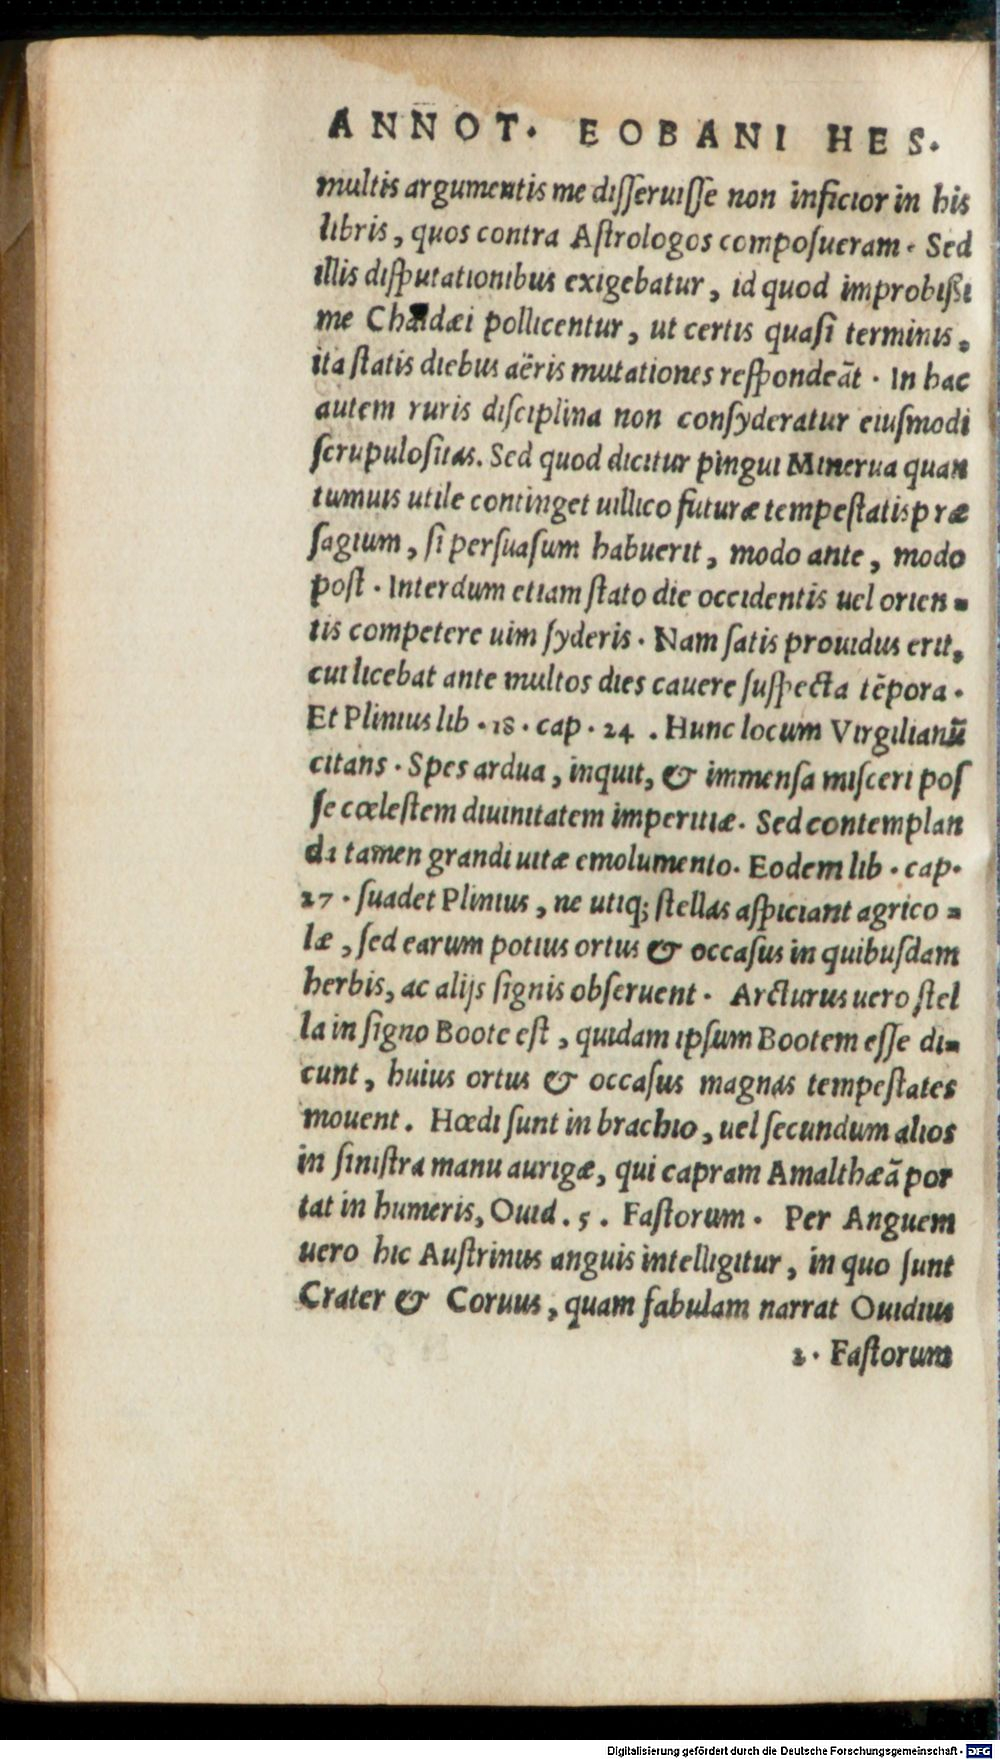 ANNOT. EOBANI HES.
multis argumentis me disseruisse non inficior in his
libris, quos contra Astrologos composueram. Sed
illis disputationibus exigebatur, id quod improbissi
me Chaldæi pollicentur, ut certis quasi terminis,
ita statis diebus aëris mutationes respondeãt. In hac
autem ruris disciplina non consyderatur eiusmodi
scrupulositas. Sed quod dicitur pingui Minerua quan
tumuis utile continget uillico futuræ tempestatis præ
sagium, si persuasum habuerit, modo ante, modo
post. Interdum etiam stato die occidentis uel orien-
tis competere uim syderis. Nam satis prouidus erit,
cui licebat ante multos dies cauere suspecta tẽpora.
Et Plinius lib. 18. cap. 24. Hunc locum Virgilianũ
citans. Spes ardua, inquit, & immensa misceri pos
se cœlestem diuinitatem imperitiæ. Sed contemplan
di tamen grandi uitæ emolumento. Eodem lib. cap.
27. suadet Plinius, ne utiq; stellas aspiciant agrico-
læ, sed earum potius ortus & occasus in quibusdam
herbis, ac alijs signis obseruent. Arcturus uero stel
la in signo Boote est, quidam ipsum Bootem esse di-
cunt, huius ortus & occasus magnas tempestates
mouent. Hœdi sunt in brachio, uel secundum alios
in sinistra manu aurigæ, qui capram Amalthæã por
tat in humeris, Ouid. 5. Fastorum. Per Anguem
uero hic Austrinus anguis intelligitur, in quo sunt
Crater & Coruus, quam fabulam narrat Ouidius
2. Fastorum
Digitalisierung gefördert durch die Deutsche Forschungsgemeinschaft - DFG